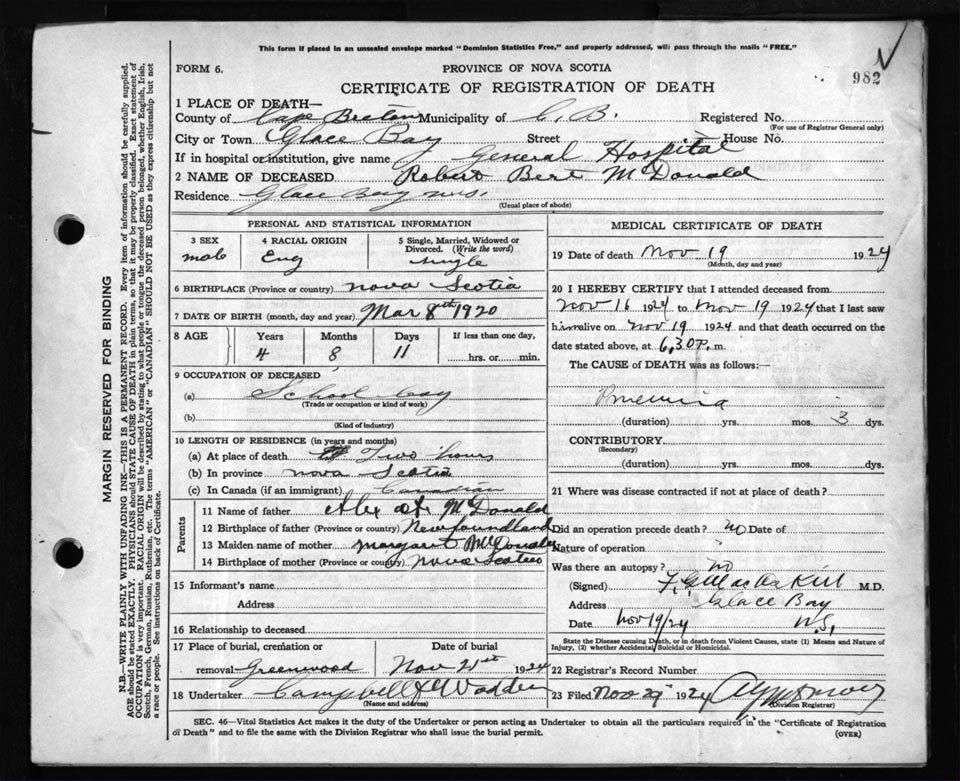 This form if placed in an unsealed envelope marked "Dominion Statistics Free," and properly addressed, will pass through the mails "FREE."
982
FORM 6. PROVINCE OF NOVA SCOTIA
CERTIFICATE OF REGISTRATION OF DEATH
1 PLACE OF DEATH—
County of Cape Breton Municipality of C. B. Registered No.
(For use of Registrar General only)
City or Town Glace Bay Street House No.
If in hospital or institution, give name General Hospital
2 NAME OF DECEASED Robert Bert McDonald
Residence Glace Bay N.S.
(Usual place of abode)
PERSONAL AND STATISTICAL INFORMATION
3 SEX 4 RACIAL ORIGIN 5 Single, Married, Widowed or Divorced. (Write the word)
male Eng single
6 BIRTHPLACE (Province or country) Nova Scotia
7 DATE OF BIRTH (month, day and year) Mar 8th 1920
8 AGE Years Months Days If less than one day,
4 8 11 hrs. or min.
9 OCCUPATION OF DECEASED
(a) School boy
(Trade or occupation or kind of work)
(b)
(Kind of industry)
10 LENGTH OF RESIDENCE (in years and months)
(a) At place of death Two hours
(b) In province Nova Scotia
(c) In Canada (if an immigrant) Canadian
Parents
11 Name of father Alex McDonald
12 Birthplace of father (Province or country) Newfoundland
13 Maiden name of mother Margaret
14 Birthplace of mother (Province or country) Nova Scotia
15 Informant's name
Address
16 Relationship to deceased
17 Place of burial, cremation or
removal Greenwood Nov 21st 1924
18 Undertaker Campbell & Wadden
(Name and address)
MEDICAL CERTIFICATE OF DEATH
19 Date of death Nov 19 1924
(Month, day and year)
20 I HEREBY CERTIFY that I attended deceased from
Nov 16 1924 to Nov 19 1924 that I last saw
him alive on Nov 19 1924 and that death occurred on the
date stated above, at 6.30 P. m.
The CAUSE of DEATH was as follows:
(duration) yrs. mos. 3 dys.
CONTRIBUTORY
(Secondary)
(duration) yrs. mos. dys.
21 Where was disease contracted if not at place of death?
Did an operation precede death? no Date of
Nature of operation
Was there an autopsy? no
(Signed) M.D.
Address Glace Bay
Date Nov 19/24 N.S.
State the Disease causing Death, or in death from Violent Causes, state (1) Means and Nature of
Injury, (2) whether Accidental, Suicidal or Homicidal.
22 Registrar's Record Number
23 Filed Nov 1924
(Division Registrar)
SEC. 46—Vital Statistics Act makes it the duty of the Undertaker or person acting as Undertaker to obtain all the particulars required in the "Certificate of Registration
of Death" and to file the same with the Division Registrar who shall issue the burial permit. (OVER)
MARGIN RESERVED FOR BINDING
N.B.—WRITE PLAINLY WITH UNFADING INK—THIS IS A PERMANENT RECORD. Every item of information should be carefully supplied.
AGE should be stated EXACTLY. PHYSICIANS should STATE CAUSE OF DEATH in plain terms, so that it may be properly classified. Exact statement of
OCCUPATION is very important. RACIAL ORIGIN will be described by stating to what people or tongue the deceased person belonged, whether English, Irish,
Scotch, French, German, Russian, Ruthenian, etc. The terms "AMERICAN" or "CANADIAN" SHOULD NOT BE USED as they express citizenship but not
a race or people. See instructions on back of Certificate.